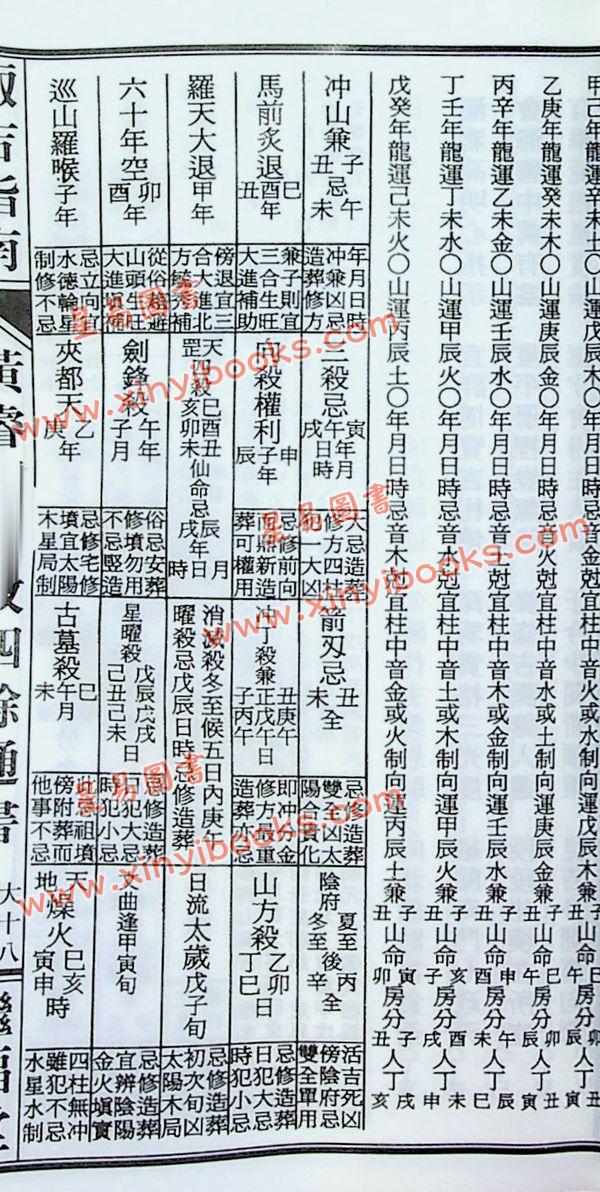 甲己年龍運辛未土〇山運戊辰木〇年月日時忌音火尅宜柱中音水或土制向運戊辰木兼子丑山命巳午房分卯辰人丁丑寅
乙庚年龍運癸未木〇山運庚辰金〇年月日時忌音火尅宜柱中音水或土制向運庚辰金兼子丑山命巳午房分卯辰人丁丑寅
丙辛年龍運乙未金〇山運壬辰水〇年月日時忌音土尅宜柱中音木或金制向運壬辰水兼子丑山命申酉房分午未人丁辰巳
丁壬年龍運丁未水〇山運甲辰火〇年月日時忌音水尅宜柱中音土或木制向運甲辰火兼子丑山命亥子房分酉戌人丁未申
戊癸年龍運己未火〇山運丙辰土〇年月日時忌音木尅宜柱中音金或火制向運丙辰土兼子丑山命寅卯房分子丑人丁戌亥
冲山兼子丑忌午未
年月日時冲兼凶忌造葬修方
三殺忌寅午戌年月日時
大忌造葬修方四柱犯一大凶
箭刃忌丑未全
忌修造葬雙全凶太陽合貴化
陰府夏至冬至後丙辛全
活吉死凶傍陰府忌雙全單用
馬前炙退巳酉丑年
兼子則宜三合生旺大進補助
向殺權利申子辰年
忌修前向而鼎新造葬可權用
冲丁殺兼子丑正庚戊丙午午日
即冲分金修方最重造葬亦忌
山方殺乙卯丁巳日
忌修造葬日犯大忌時犯小忌
羅天大退甲年
傍退宜三合大進北方毓秀補
天罡四殺巳酉丑亥卯未仙命忌辰戌年月日時
消滅殺冬至候五日內庚午
曜殺忌戊辰日時忌修造葬
日流太歲戊子旬
忌修造葬初次旬凶太陽木局
六十年空卯酉
從俗趨避山頭生旺大進填補
劍鋒殺午子年月
俗忌安葬修墳勿用不忌堅造
星曜殺戊辰戊戌己丑己未日
忌修造葬日犯大忌時犯小忌
文曲逢甲寅旬
忌修造葬宜辨陰陽金火塡實
巡山羅㬋子年
忌立向宜水德輪星制修不忌
夾都天乙庚年
忌修宅修墳宜太陽木星局制
古墓殺巳午未月
此忌祖墳傍附葬而他事不忌
天地燥火巳亥寅申時
四柱無冲雖犯不忌水星水制
大十八
星易圖書
www.xinyibooks.com
星易圖書
www.xinyibooks.com
星易圖書
www.xinyibooks.com
星易圖書
www.xinyibooks.com